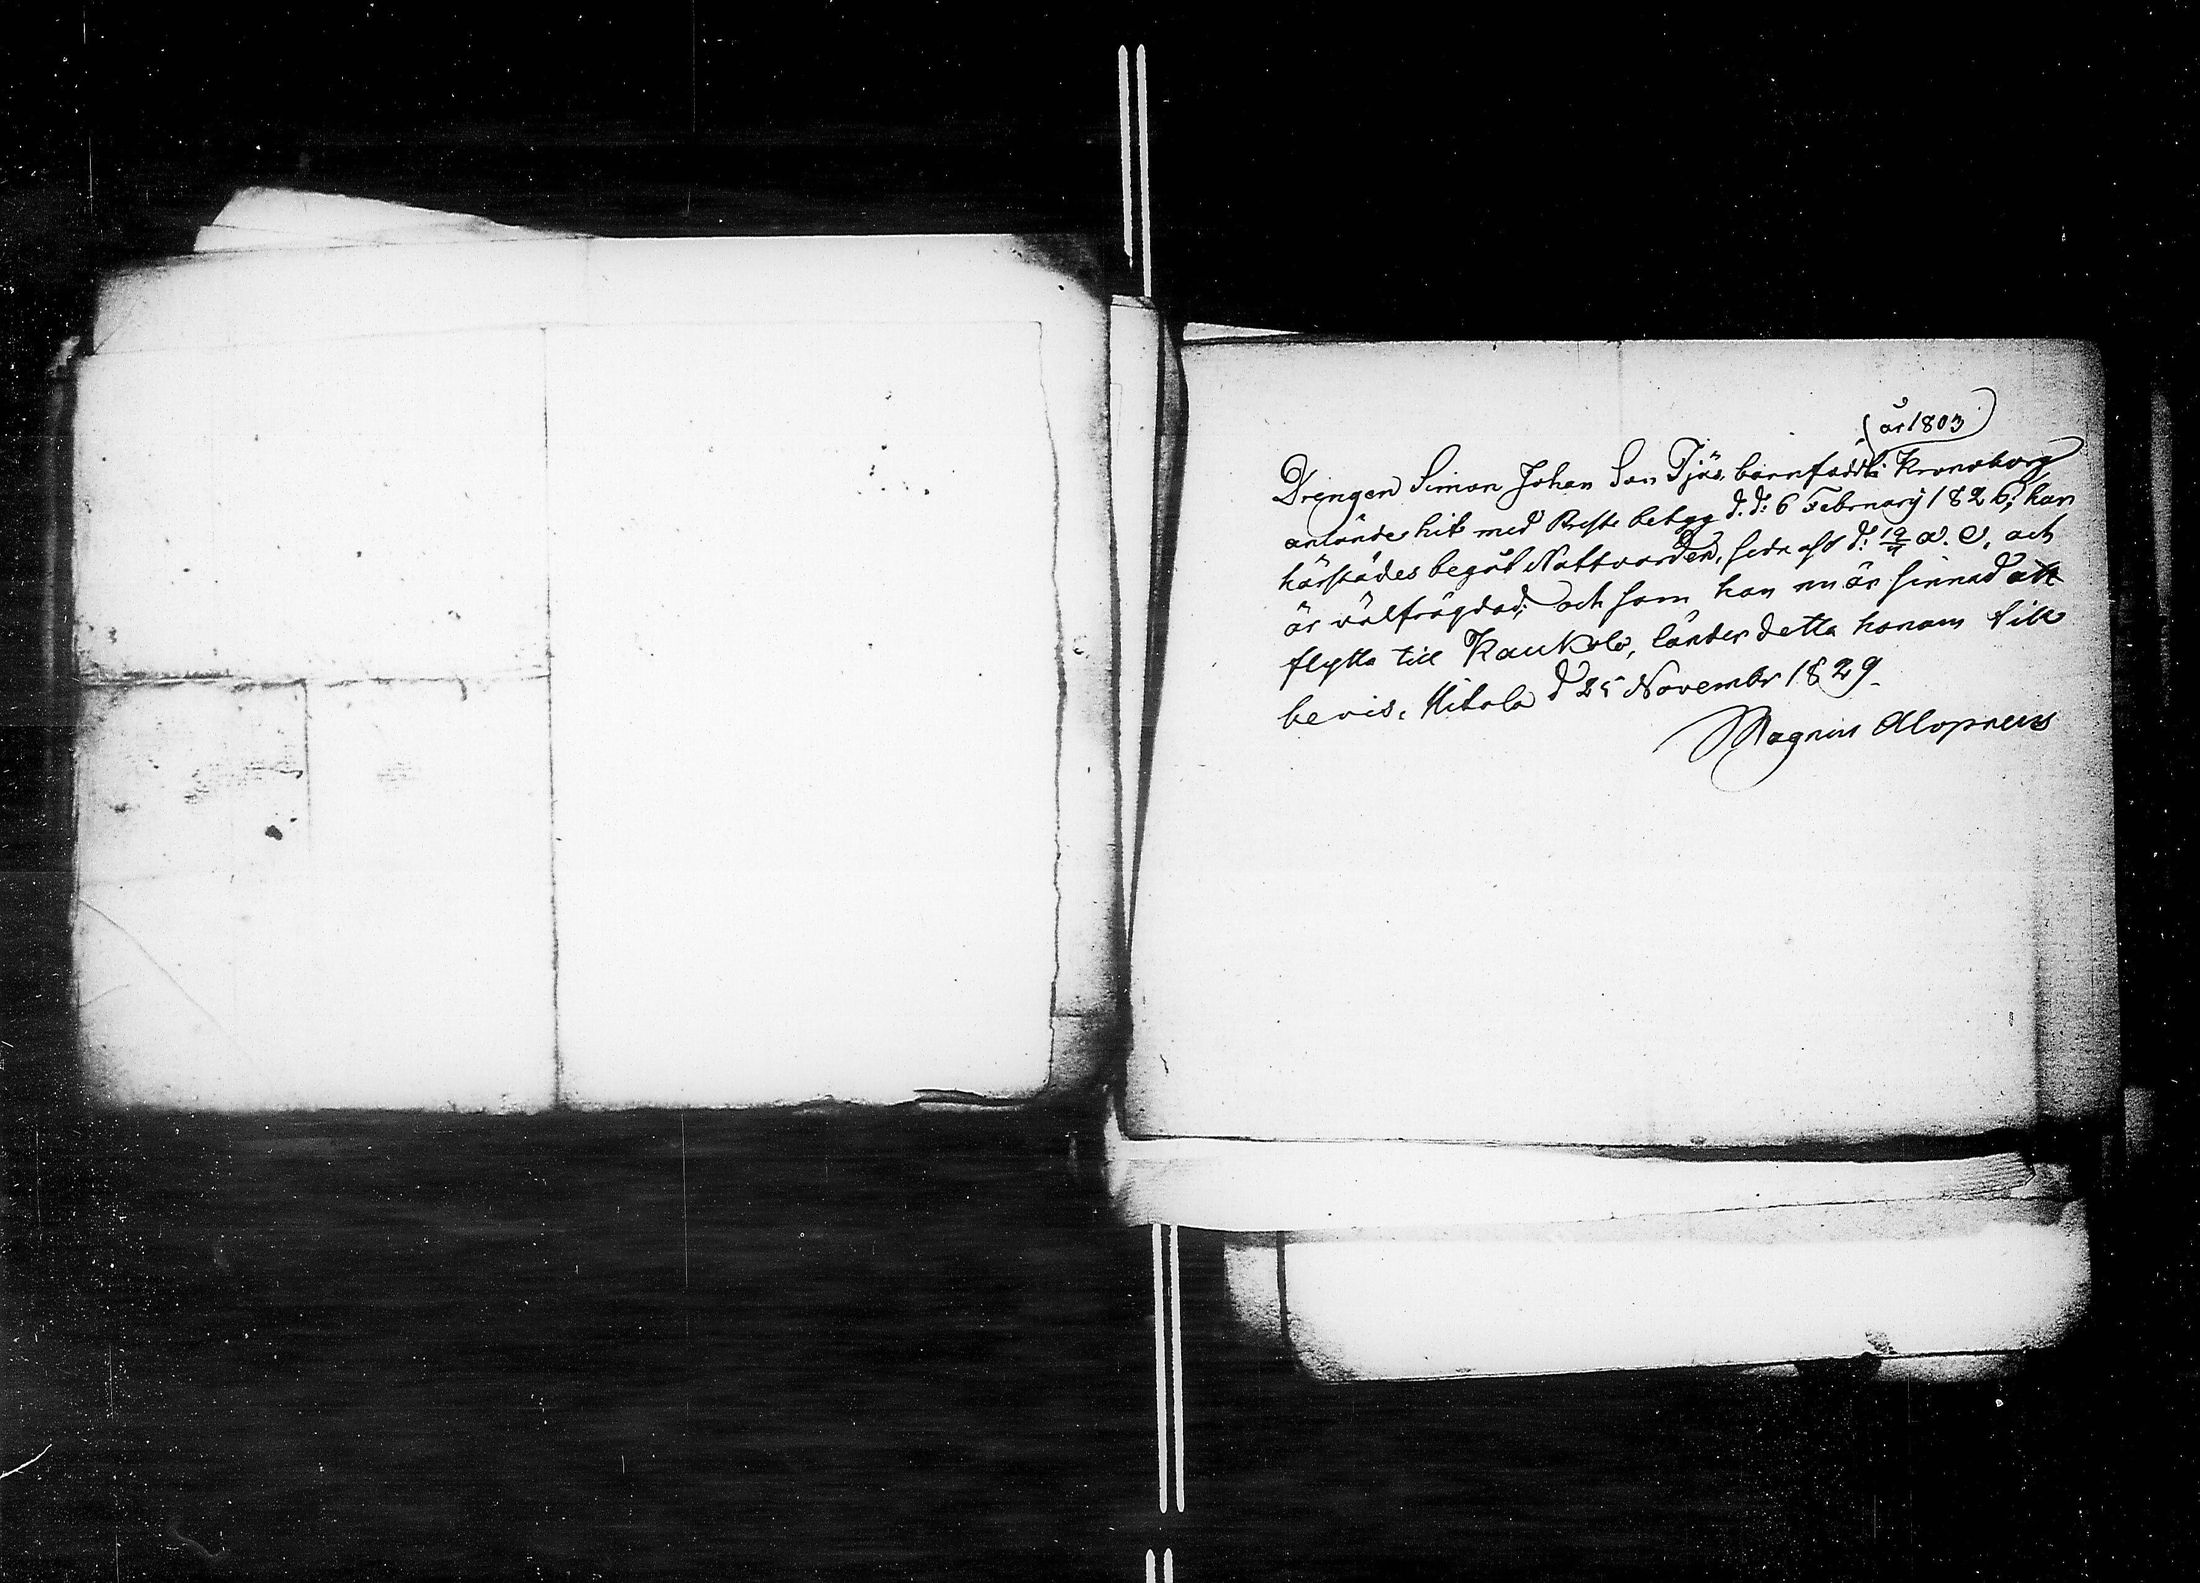 (år 1803)
Drengen Simon Johan Son Tjäs, barnfödd i Kronoborg
anlände hit med Preste betyg d. d: 6 Februarij 1826; han
härstädes begåt Nattvarden, sedn ast d: 19/7 a. c, och
är välfrägdad; och som han nu är sinnad att
flytta till Kaukola, länder detta honom till
bevis. Hitola d 25 Novembr 1829.
Magnus Alopaeus